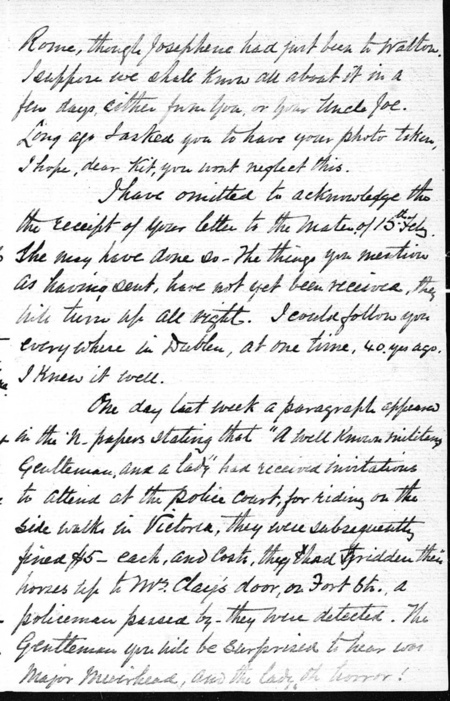 Rome, though Josephene had just been to Walton.
I suppose we shall know all about it in a
few days, either from you, or your Uncle Joe.
Long ago I asked you to have your photo taken,
I hope, dear Kit, you wont neglect this.
I have omitted to acknowledge the
the receipt of your letter to the Mater of 15th Feby.
She may have done so - The things you mention
as having sent, have not yet been received, they
will turn up all right. I could follow you
everywhere in Dublin, at one time, 40 yrs ago.
I knew it well.
One day last week a paragraph appeared
in the N. papers stating that "A well known military
Gentleman, and a lady" had received invitations
to attend at the police court, for riding on the
side walks in Victoria, they were subsequently
fined $5 - each, and Costs, they had ridden their
horses up to Mrs. Clay's door, on Fort St., a
policeman passed by - they were detected. The
Gentleman you will be surprised to hear was
Major Muirhead, and the lady, oh horror!